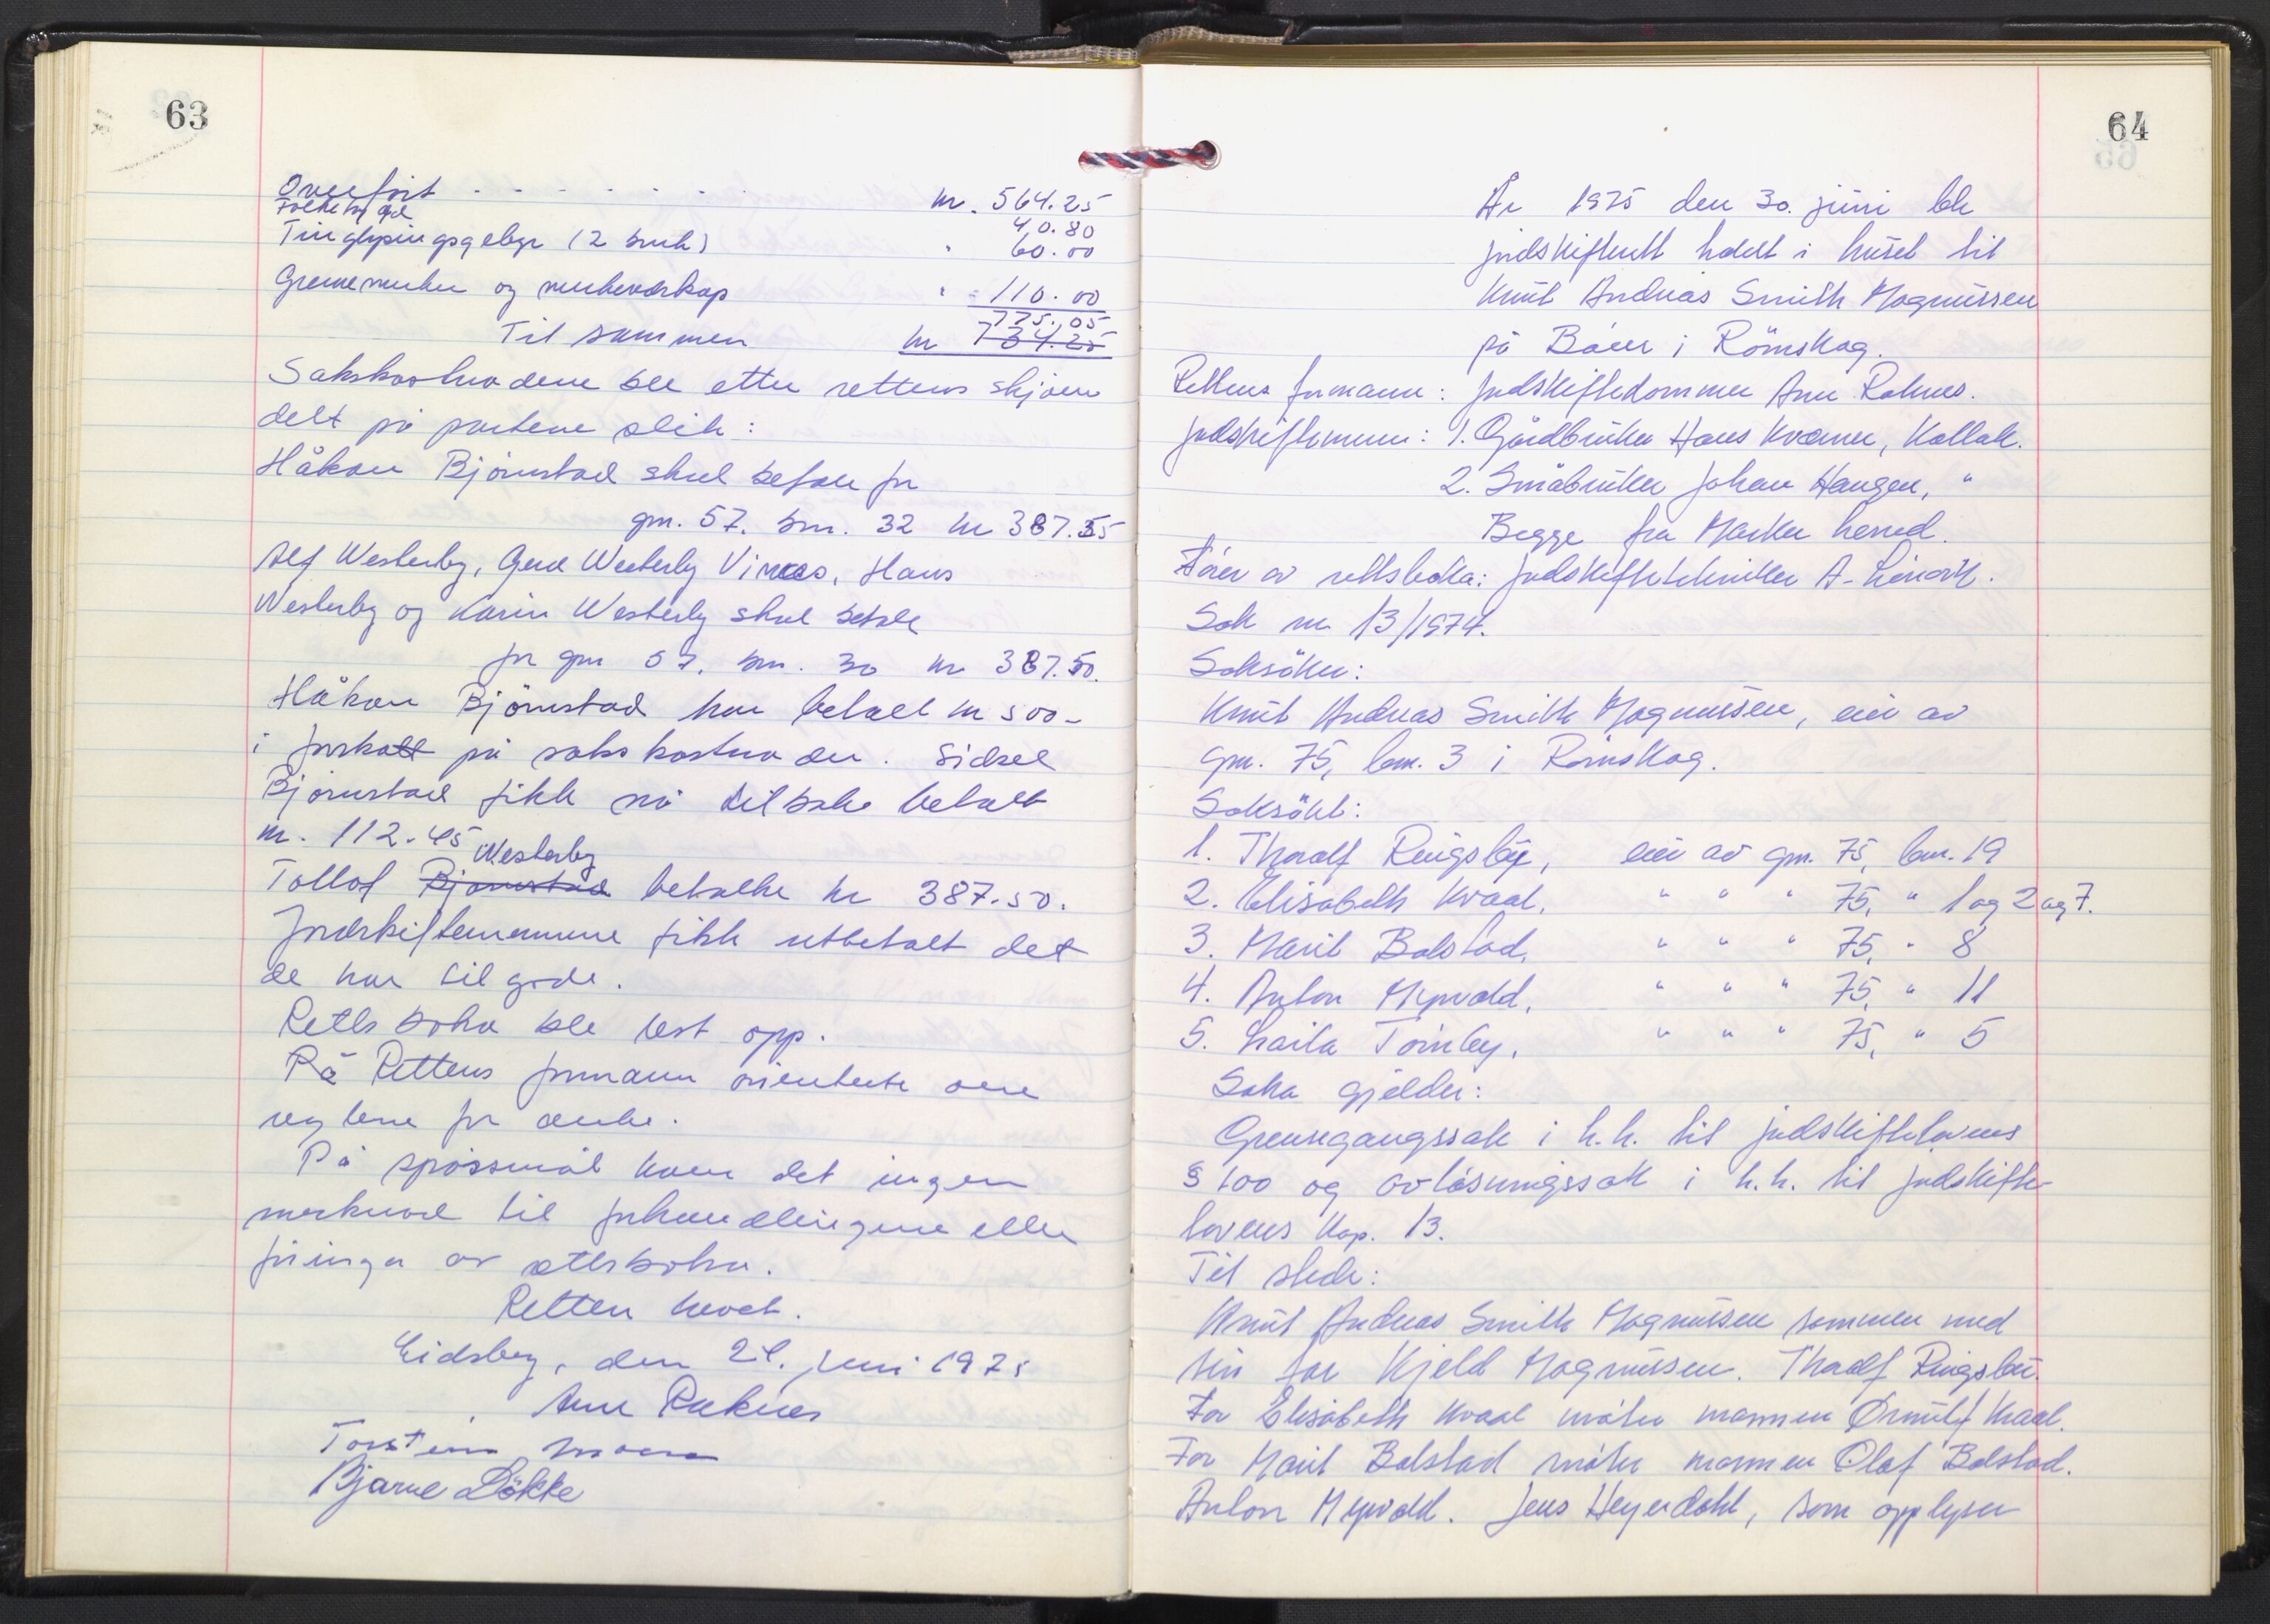 63
Overført . . . . . . . kr. 564.25
Folketrygd 40.80
Tinglysingsgebyr (2 bruk) " 60.00
Grensemerker og merkeredskap " 110.00
775.05
Til sammen kr 734.25
Sakskostnadene ble etter rettens skjønn
delt på partene slik:
Håkon Bjørnstad skal betale for
gnr. 57. bnr. 32 kr 387.55
Alf Westerby, Gerd Westerby Vinæs, Hans
Westerby og Karin Westerby skal betale
for gnr 57. bnr. 30 kr 387.50.
Håkon Bjørnstad har betalt kr 500-
i forskott på sakskostnader. Sidsel
Bjørnstad fikk nå tilbake betalt
kr. 112.45
Westerby
Tollof Bjørnstad betalte kr 387.50.
Jordskiftemennene fikk utbetalt det
de har til gode.
Rettsboka ble lest opp.
På Rettens formann orienterte om
reglene for anke.
På spørsmål kom det ingen
merknad til forhandlingene eller
føringa av rettsboka.
Retten hevet.
Eidsberg, den 24. juni 1975
Arne Raknes
Torstein Moen
Bjarne Løkke
64
År 1975 den 30. juni ble
jordskifterett holdt i huset til
Knut Andreas Smith Magnussen
på Bøen i Rømskog.
Rettens formann: Jordskiftedommer Arne Raknes.
Jordskiftemenn: 1. Gårdbruker Hans Kværner, Kallak.
2. Småbruker Johan Haugen, "
Begge fra Marker herred.
Fører av rettsboka: Jordskiftetekniker A. Linorik.
Sak nr 13/1974.
Saksøker:
Knut Andreas Smith Magnussen, eier av
gnr. 75, bnr. 3 i Rømskog.
Saksøkt:
1. Thoralf Ringsby, eier av gnr. 75, bnr. 19
2. Elisabeth Kraal, " " " 75, " 1 og 2 og 7.
3. Marit Bolstad, " " " 75, " 8
4. Anton Myrvold, " " " 75, " 11
5. Laila Tomby, " " " 75, " 5
Saka gjelder:
Grensegangssak i h.h. til jordskiftelovens
§ 100 og avløsningssak i h.h. til jordskifte-
lovens kap. 13.
Til stede:
Knut Andreas Smith Magnussen sammen med
sin far Kjeld Magnussen. Thoralf Ringsby.
For Elisabeth Kraal møter mannen Ørnulf Kraal.
For Marit Bolstad møter mannen Olaf Bolstad.
Anton Myrvold. Jens Heyerdahl, som opplyser